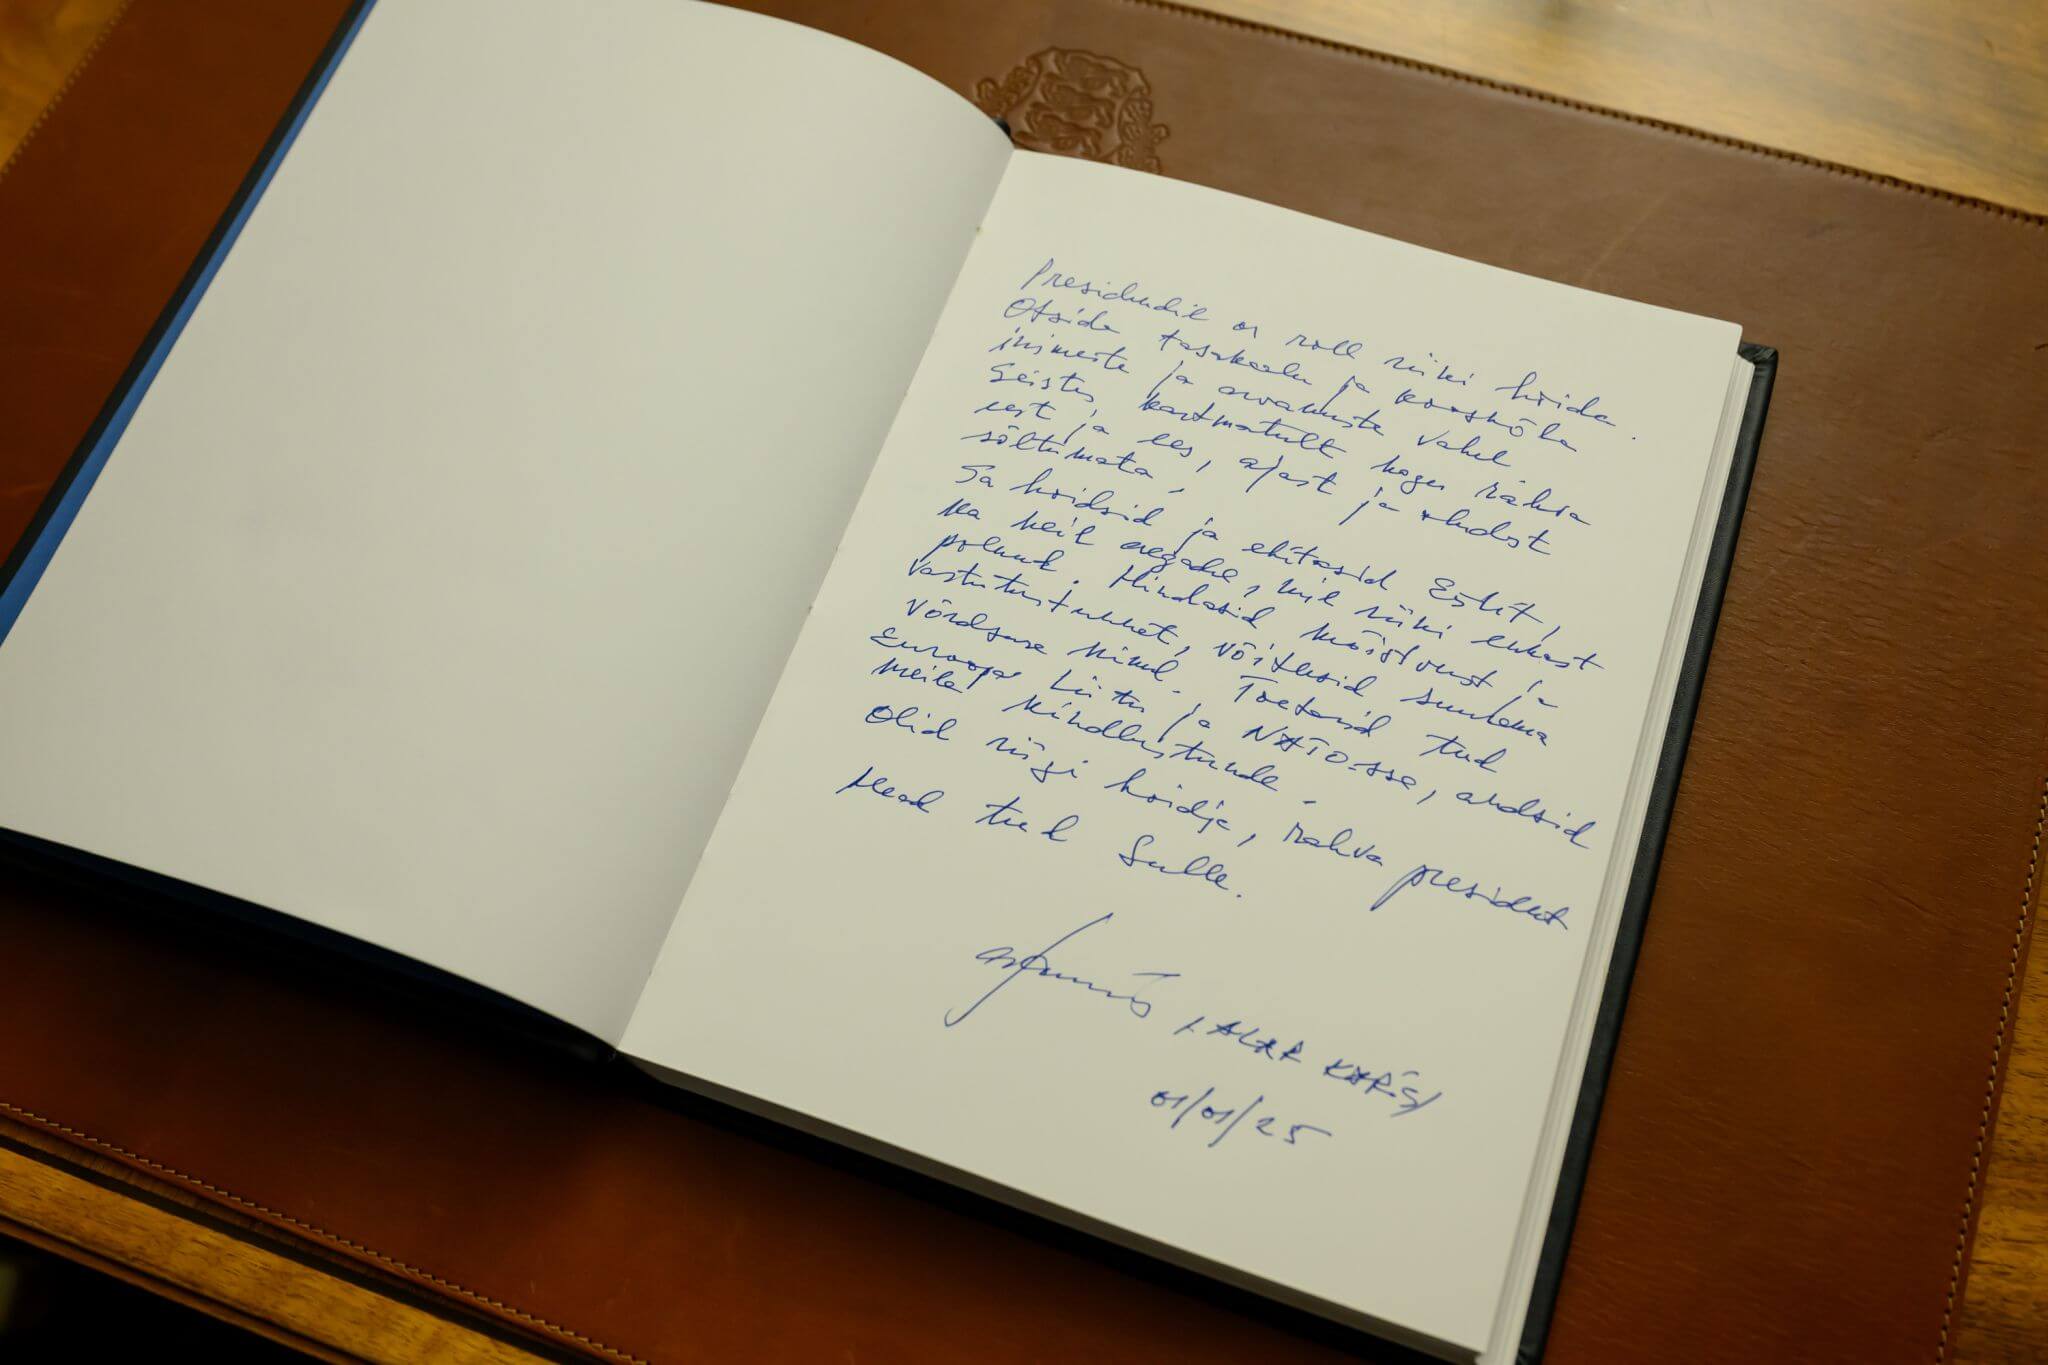 Presidendil on roll riiki hoida.
Otsida tasakaalu ja kooskõla
inimeste ja arvamuste vahel
Seista kartmatult kogu rahva
eest ja ees, ajast ja oludest
sõltumata.
Sa hoidsid ja ehitasid Eestit,
ka neil aegadel, mil riiki ennast
polnud. Hindasid mõistvust ja
vastutustunnet, võitlesid suutma
võrdsuse nimel. Toetasid teed
Euroopa Liitu ja NATO-sse, andsid
meile kindlustunde.
Olid riigi hoidja, rahva president
Head teed Sulle.
ALAR KARIS
01/01/25